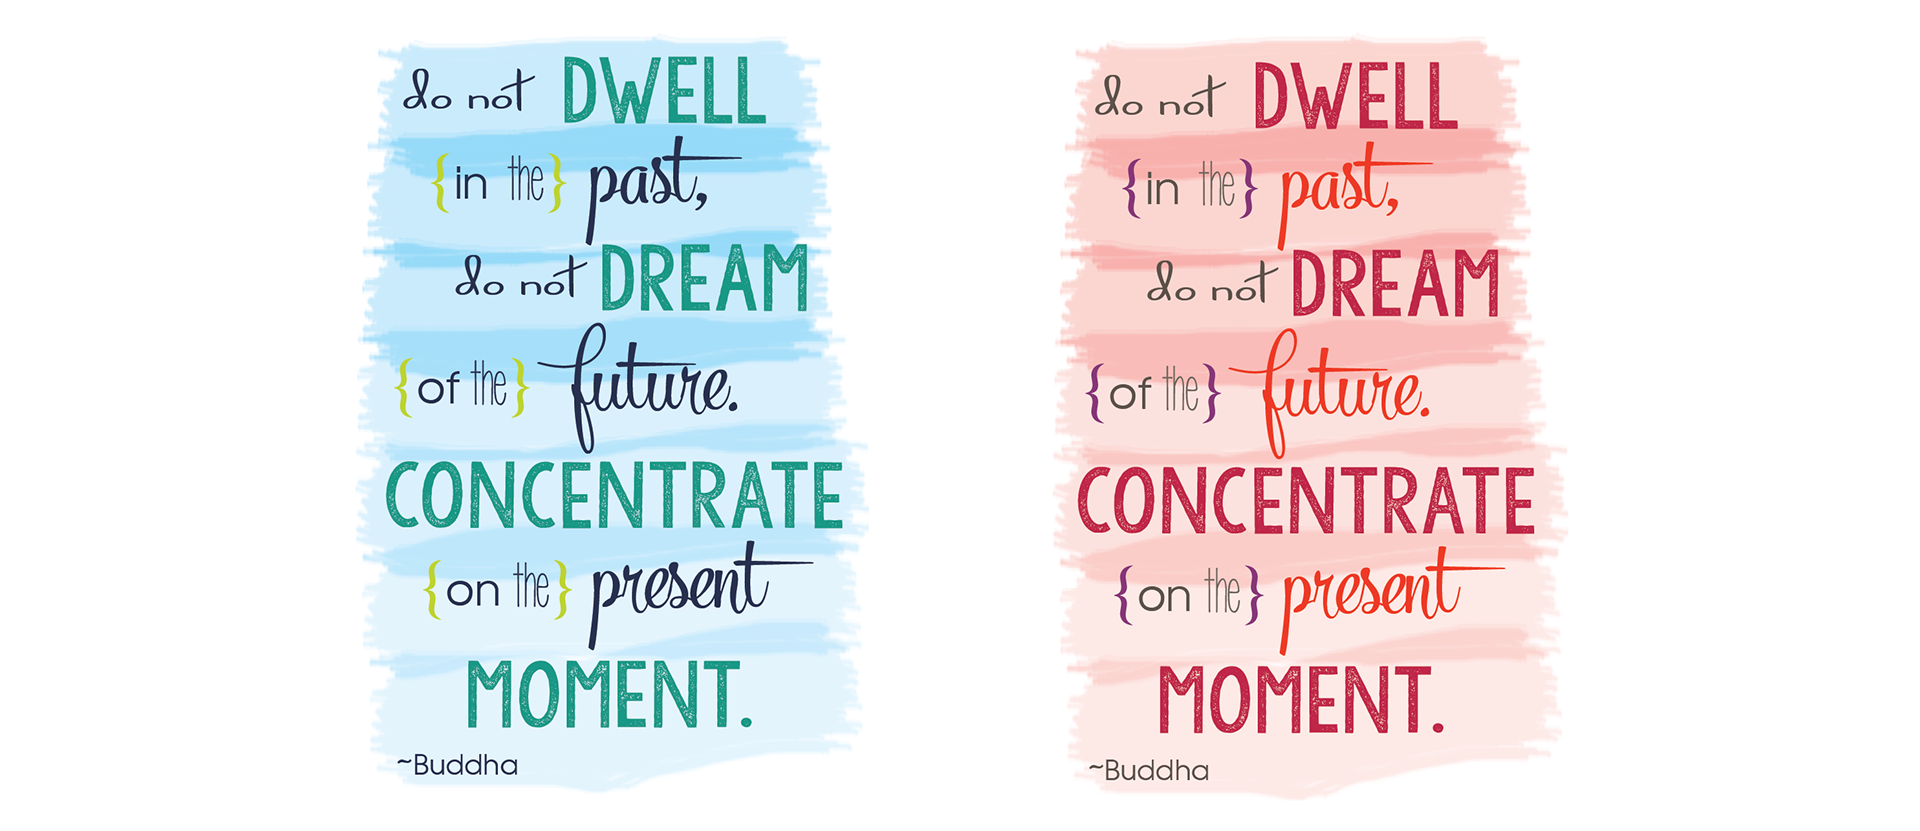 do not DWELL
{in the} past,
do not DREAM
{of the} future.
CONCENTRATE
{on the} present
MOMENT.
~Buddha
do not DWELL
{in the} past,
do not DREAM
{of the} future.
CONCENTRATE
{on the} present
MOMENT.
~Buddha